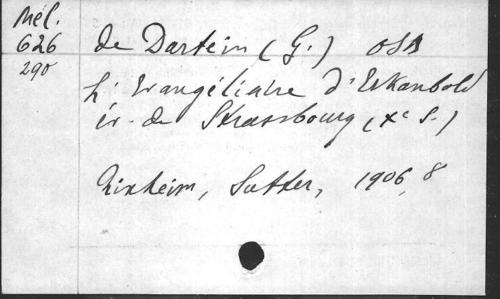 Mél.
626
290
de Dartein (G.) OSB
L'Evangéliaire d'Erkanbold
év. de Strassbourg (Xe S.)
Rixheim, Sutter, 1906, 8